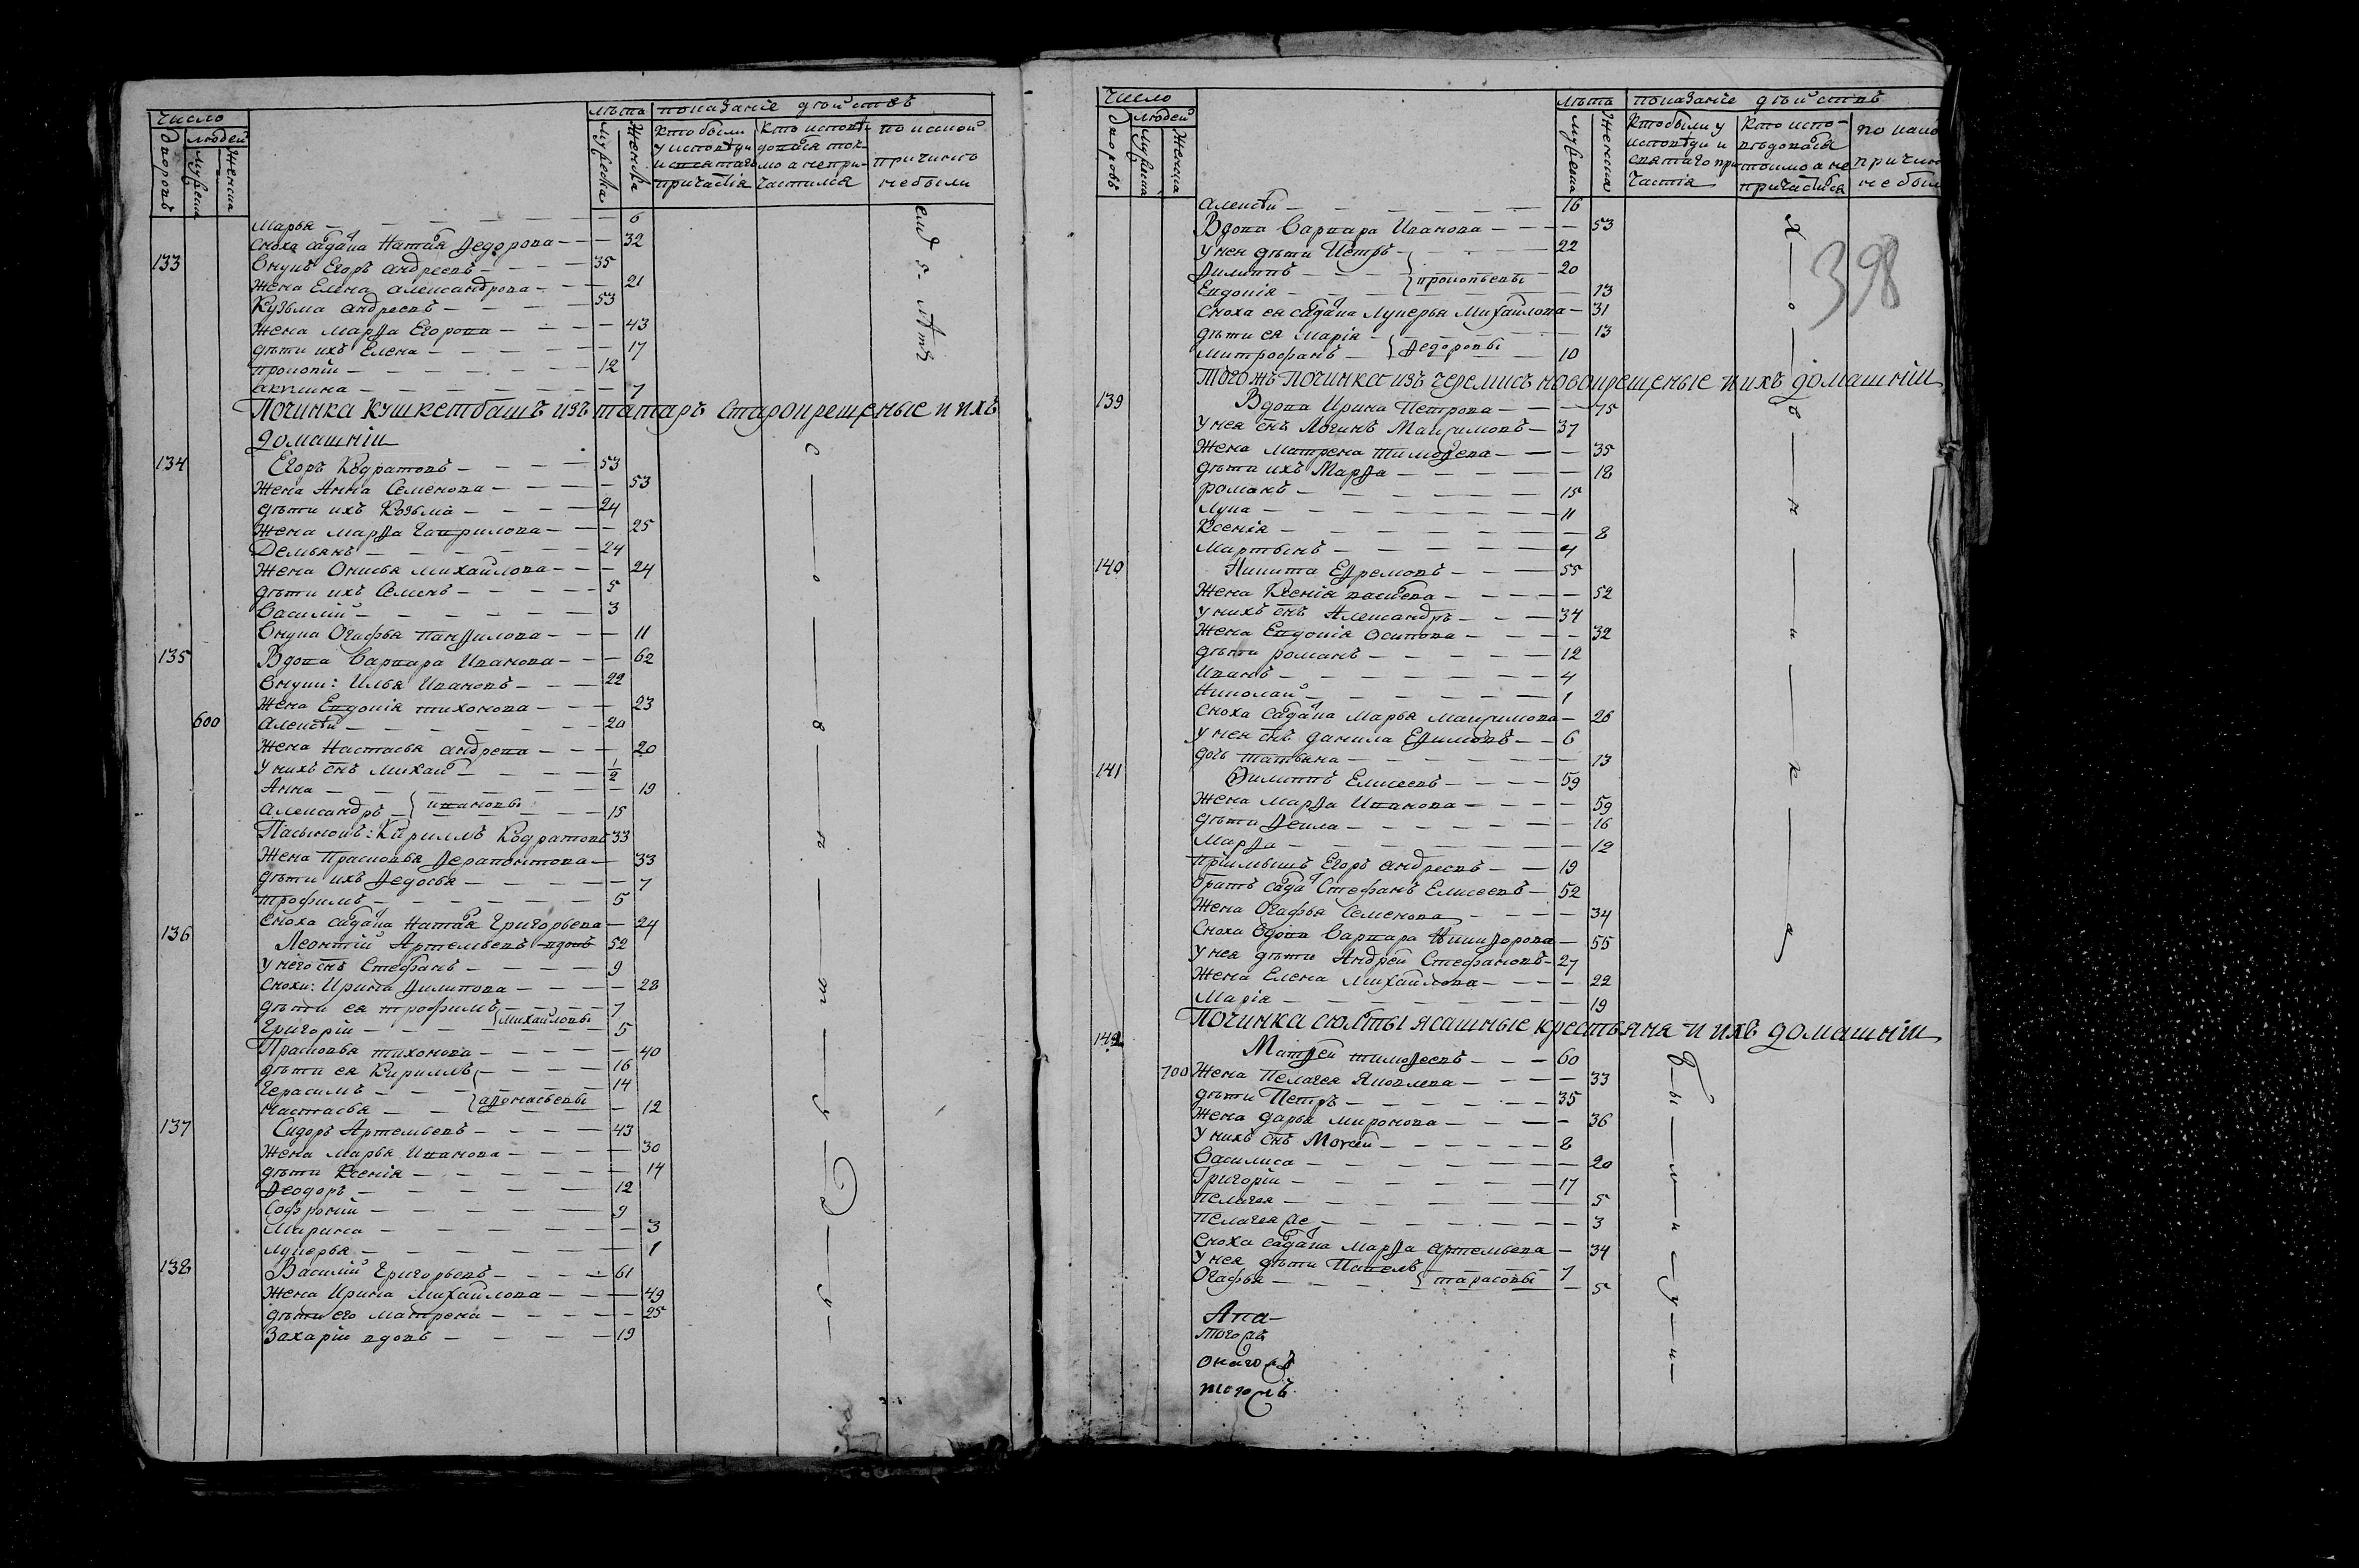 число
лѣта показанїе двойствъ
дворовъ людей мужска женска
мужеска женска
кто были у исповѣди и святаго причастїя
кто исповѣдовался токмо а не причастился
по какой причинѣ не были
Марья 6
Сноха вдова Наталья Ѳедорова 32
133 Внукъ Егоръ Андреевъ 35
Жена Елена Александрова 21
Кузьма Андреевъ 53
Жена Марѳа Егорова 43
дѣти ихъ Елена 17
прокопїй 12
акулина 7
Починка Кушкетбашъ изъ татаръ старокрещеные и ихъ
домашнїи
134 Егоръ Кодратовъ 53
Жена Анна Семенова 53
дѣти ихъ Козьма 24
Жена марѳа Гаврилова 25
Демьянъ 24
Жена Онисья михайлова 24
дѣти ихъ Семенъ 5
Василїй 3
Внука Огафья Панѳилова 11
135 Вдова Варвара Иванова 62
Внуки: Илья Ивановъ 22
Жена Евдокїя тихонова 23
600 Алексѣй 20
Жена Настасья андрева 20
У нихъ снъ михай 1/2
Анна 19
Александръ } ивановы 15
Пасынокъ: Кириллъ Кодратовъ 33
Жена Прасковья Ѳерапонтова 33
дѣти ихъ Ѳедосья 7
трофимъ 5
Сноха вдова Наталья Григорьева 24
136 Леонтїй Артемьевъ вдовъ 52
У него снъ Стефанъ 9
Снохи: Ирина Ѳилипова 28
дѣти ея трофимъ 7
Григорїй } михайловы 5
Прасковья тихонова 40
дѣти ея Кириллъ 16
Герасимъ 14
Настасья } аѳонасьевы 12
137 Сидоръ Артемьевъ 43
Жена Марья Иванова 30
дѣти Ксенїя 14
Ѳеодоръ 12
Софронїй 9
Марина 3
лукерья 1
138 Василїй Григорьевъ 61
Жена Ирина Михайлова 49
дѣти его матрена 25
Захарїй вдовъ 19
число
лѣта показанїе двойствъ
дворовъ людей мужска женска
мужеска женска
Кто были у исповѣди и святаго причастїя
Кто исповѣдовался токмо а не причастился
по како причин не был
398
алексѣй 16
Вдова Варвара Иванова 53
У нея дѣти Петръ 22
Ѳилиппъ } прокопьевы 20
Евдокїя 13
Сноха ея вдова Лукерья Михайлова 31
дѣти ея Марїя 13
митрофанъ } Ѳедоровы 10
Того жъ починка изъ черемисъ новокрещеные и ихъ домашнїи
139 Вдова Ирина Петрова 75
У нея снъ Логинъ Максимовъ 37
Жена матрена тимоѳева 35
дѣти ихъ Марѳа 18
романъ 15
Лука 11
Ксенїя 8
Мартынъ 4
140 Никита Еѳремовъ 55
Жена Ксенїя васильева 52
У нихъ снъ Александръ 34
Жена Евдокїя Осипова 32
дѣти романъ 12
Иванъ 4
Николай 1
Сноха вдова Марья максимова 26
У нея снъ данила Еѳимовъ 6
дочь татьяна 13
141 Ѳилиппъ Елисеевъ 59
Жена марѳа Иванова 59
дѣти Ѳекла 16
Марѳа 12
прїимышъ Егоръ андреевъ 19
братъ Стефанъ Елисеевъ 52
Жена Огафья Семенова 34
Сноха вдова Варвара Никиѳорова 55
У нея дѣти Андрей Стефановъ 27
Жена Елена михайлова 22
Марїя 19
Починка сюлты ясашные крестьяна и ихъ домашнїи
142 Матѳей тимоѳеевъ 60
700 Жена Пелагея Яковлева 33
дѣти Петръ 35
Жена дарья миронова 36
У нихъ снъ Моѵсей 8
Василиса 20
Григорїй 17
Пелагея 5
пелагея же 3
Сноха вдова марѳа артемьева 34
У нея дѣти Павелъ 7
Огафья } тарасовы 5
тогожъ
онагожъ
тогожъ